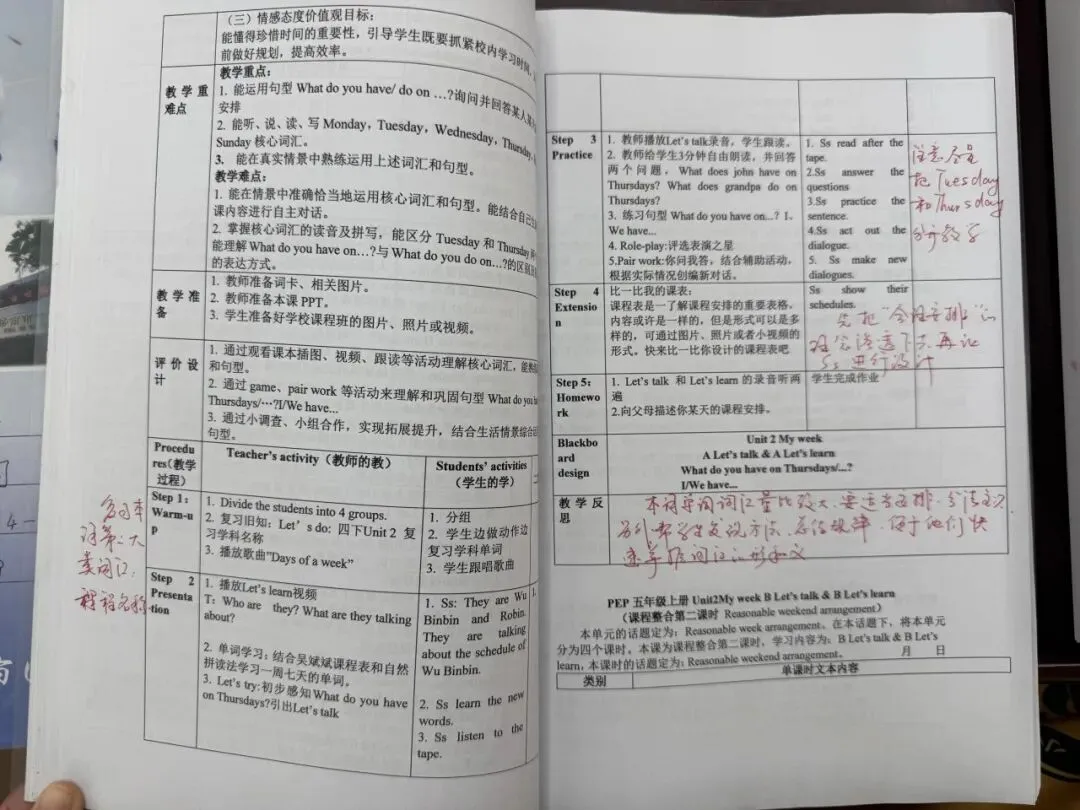 (三)情感态度价值观目标:
能懂得珍惜时间的重要性,引导学生既要抓紧校内学习时间,
前做好规划,提高效率。
教学重
难点
教学重点:
1. 能运用句型 What do you have/ do on …?询问并回答某人某
安排
2. 能听、说、读、写 Monday, Tuesday, Wednesday, Thursday,
Sunday 核心词汇。
3. 能在真实情景中熟练运用上述词汇和句型。
教学难点:
1. 能在情景中准确恰当地运用核心词汇和句型。能结合自己
课内容进行自主对话。
2. 掌握核心词汇的读音及拼写,能区分 Tuesday 和 Thursday
能理解 What do you have on…?与 What do you do on…?的区别
的表达方式。
教学准
备
1. 教师准备词卡、相关图片。
2. 教师准备本课 PPT。
3. 学生准备好学校课程班的图片、照片或视频。
评价设
计
1. 通过观看课本插图、视频、跟读等活动理解核心词汇,能
和句型。
2. 通过 game、pair work 等活动来理解和巩固句型 What do you
Thursdays/…?I/We have...
3. 通过小调查、小组合作,实现拓展提升,结合生活情景综合
句型。
Procedu
res(教学
过程)
Teacher's activity(教师的教)
Students' activities
(学生的学)
Step 1:
Warm-u
p
1. Divide the students into 4 groups.
2. 复习旧知: Let's do: 四下Unit 2 复
习学科名称
3. 播放歌曲"Days of a week"
1. 分组
2. 学生边做动作边
复习学科单词
3. 学生跟唱歌曲
Step 2
Presenta
tion
1. 播放Let's learn视频
T: Who are they? What are they talking
about?
2. 单词学习: 结合吴斌斌课程表和自然
拼读法学习一周七天的单词。
3. Let's try:初步感知What do you have
on Thursdays?引出Let's talk
1. Ss: They are Wu
Binbin and Robin.
They are talking
about the schedule of
Wu Binbin.
2. Ss learn the new
words.
3. Ss listen to the
tape.
Step 3
Practice
1. 教师播放Let's talk录音,学生跟读。
2. 教师给学生3分钟自由朗读,并回答
两个问题, What does john have on
Thursdays? What does grandpa do on
Thursdays?
3. 练习句型 What do you have on...? I-
We have...
4. Role-play:评选表演之星
5.Pair work:你问我答,结合辅助活动,
根据实际情况创编新对话。
1. Ss read after the
tape.
2.Ss answer the
questions
3.Ss practice the
sentence.
4.Ss act out the
dialogue.
5. Ss make new
dialogues.
注意尽量
把 Tuesday
和 Thursday
分开教学
Step 4
Extensio
n
比一比我的课表:
课程表是一了解课程安排的重要表格,
内容或许是一样的,但是形式可以是多
样的,可通过图片、照片或者小视频的
形式。快来比一比你设计的课程表吧
Ss show their
schedules.
先把“合理安排”的
理念渗透下去,再让
Ss 进行设计
Step 5:
Homewo
rk
1. Let's talk 和 Let's learn 的录音听两
遍
2.向父母描述你某天的课程安排。
学生完成作业
Blackbo
ard
design
Unit 2 My week
A Let's talk & A Let's learn
What do you have on Thursdays/...?
I/We have...
教学反
思
PEP 五年级上册 Unit2My week B Let's talk & B Let's learn
(课程整合第二课时 Reasonable weekend arrangement)
本单元的话题定为: Reasonable week arrangement。在本话题下,将本单元
分为四个课时。本课为课程整合第二课时,学习内容为: B Let's talk & B Let's
learn,本课时的话题定为: Reasonable weekend arrangement。 月 日
类别
单课时文本内容